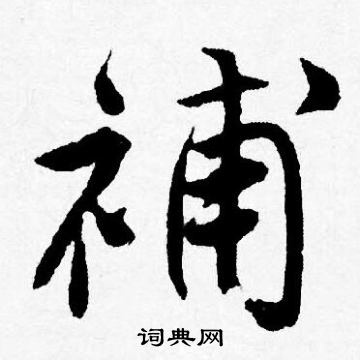 補
词典网